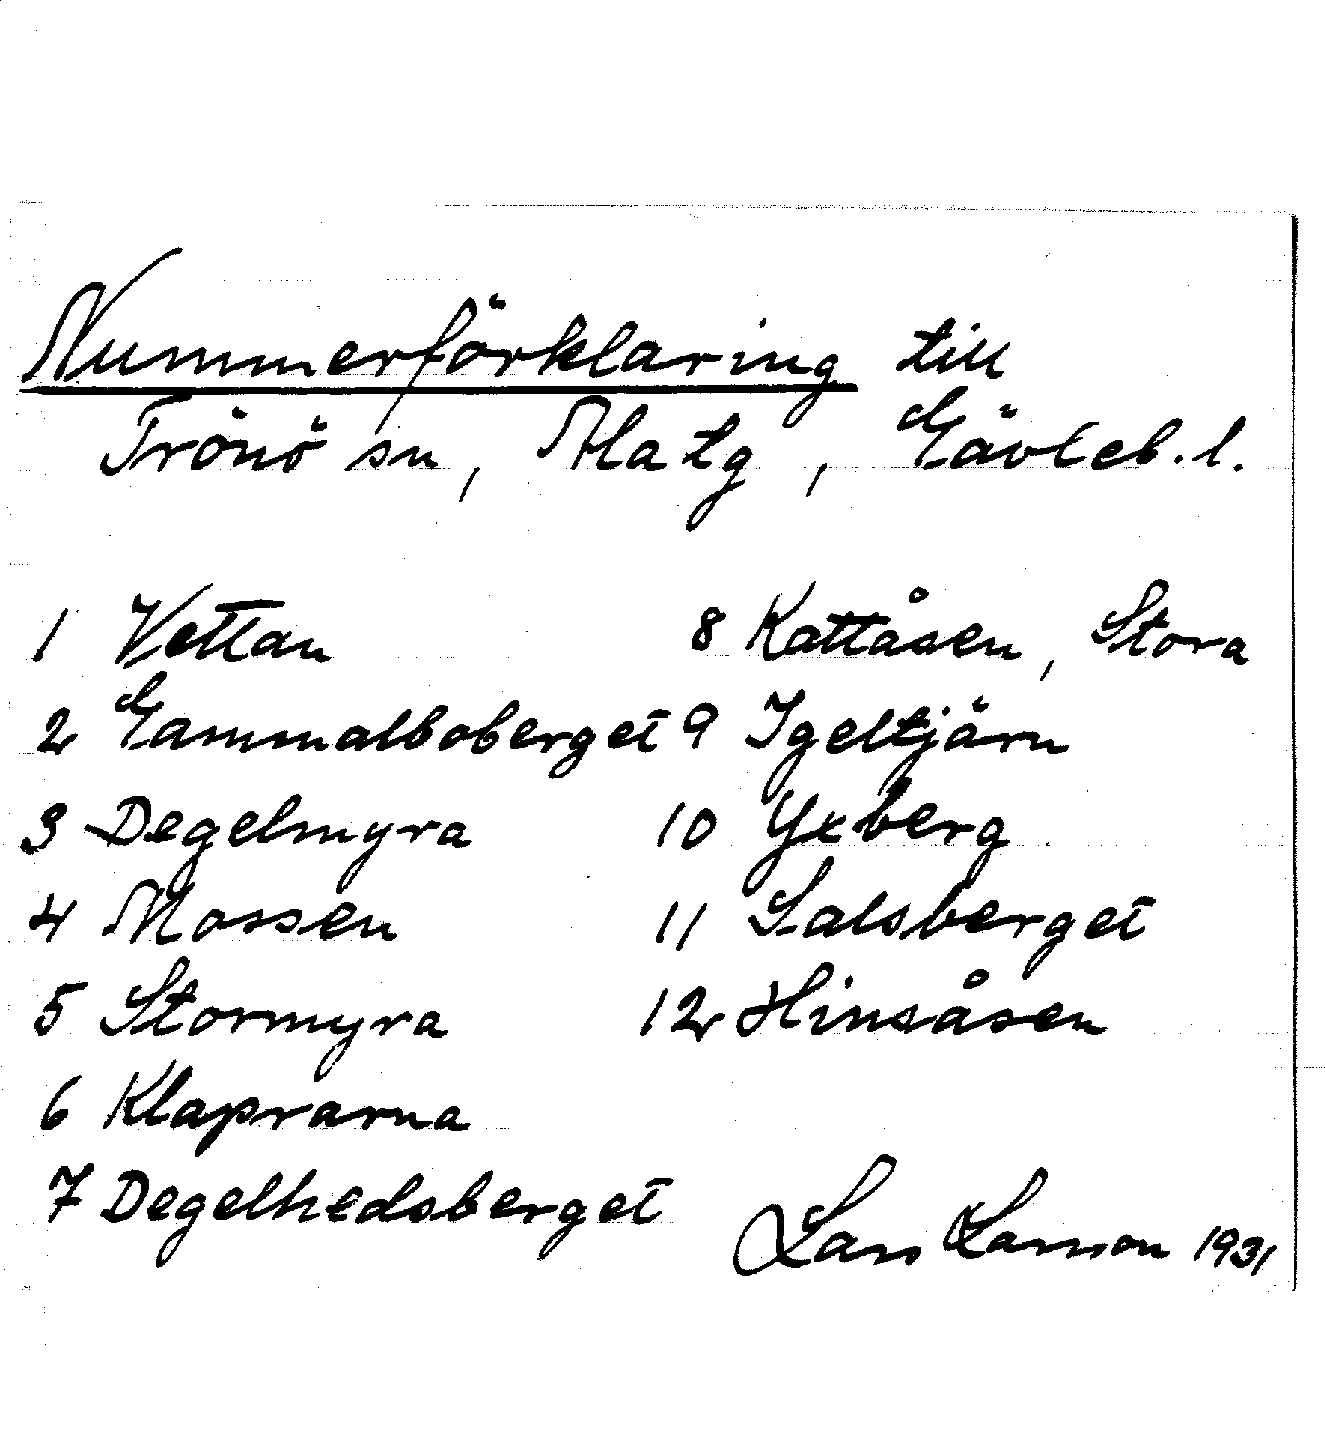 Nummerförklaring till
Trönö sn, Ala tg, Gävleb. l.
1 Vettan
2 Gammalboberget
3 Degelmyra
4 Mossen
5 Stormyra
6 Klaprarna
7 Degelhedsberget
8 Kattåsen, Stora
9 Igeltjärn
10 Yxberg
11 Salsberget
12 Hinsåsen
Lars Larsson 1931